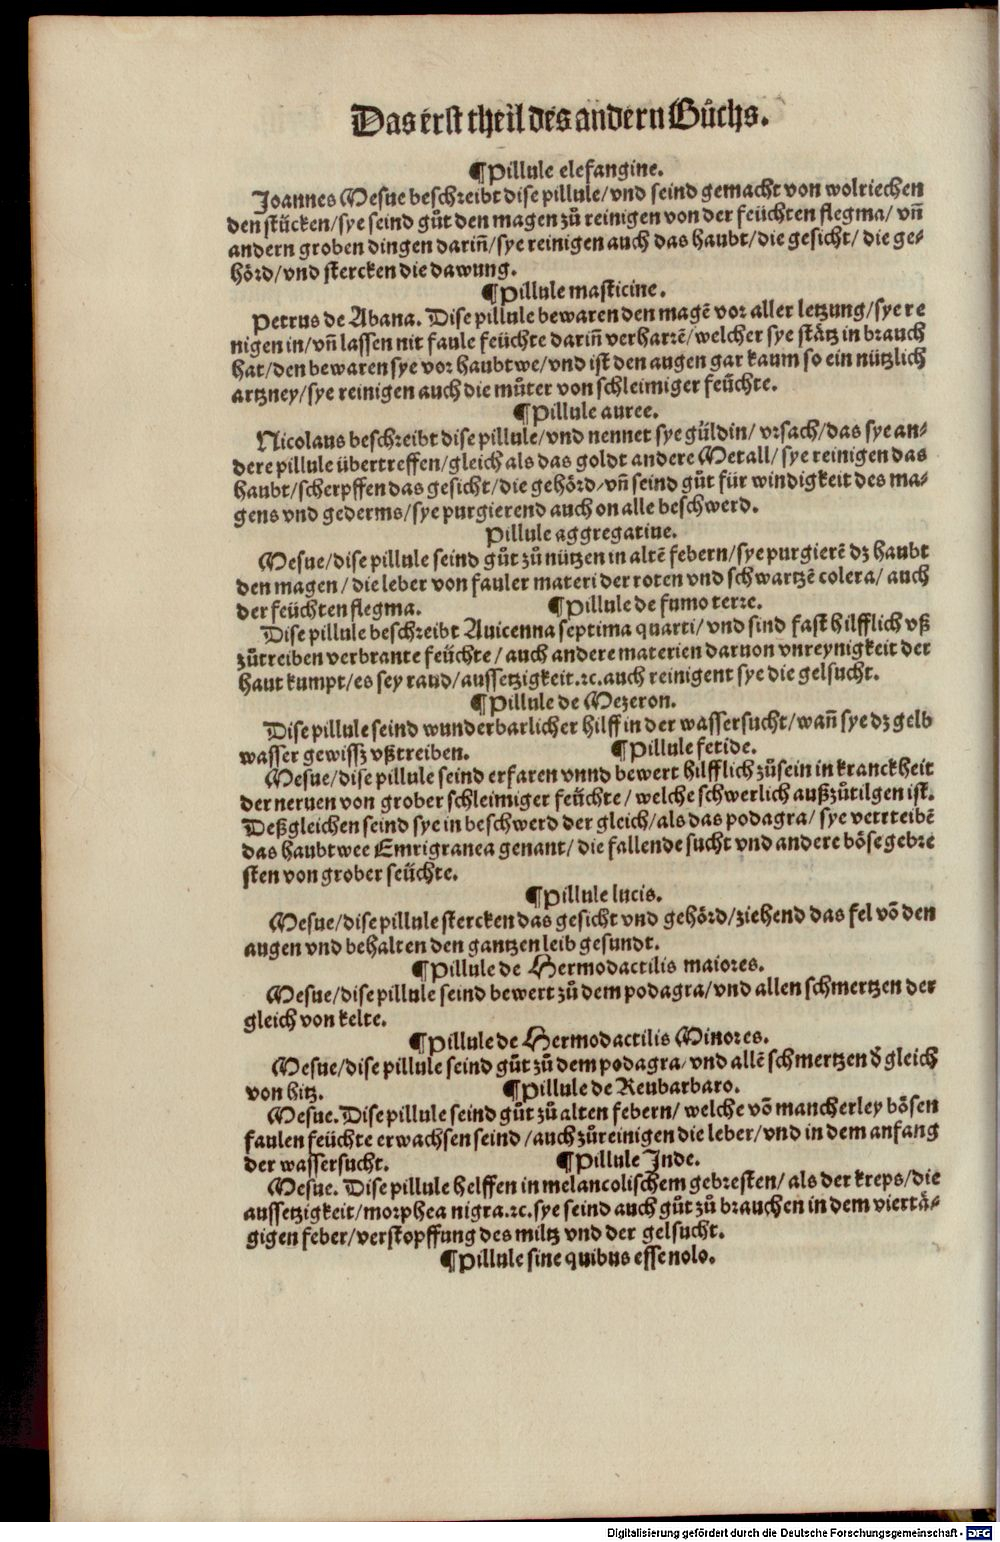 Das erst theil des andern Bůchs.
¶Pillule elefangine.
Joannes Mesue beschreibt dise pillule/vnd seind gemacht von wolriechen
den stücken/sye seind gůt den magen zů reinigen von der feüchten flegma/ vñ
andern groben dingen dariñ/sye reinigen auch das haubt/die gesicht/ die ge-
hörd/vnd stercken die dawung.
¶Pillule masticine.
Petrus de Abana. Dise pillule bewaren den magẽ vor aller letzung/sye re
nigen in/vñ lassen nit faule feüchte dariñ verharrẽ/welcher sye stätz in brauch
hat/den bewaren sye vor haubt we/vnd ist den augen gar kaum so ein nützlich
artzney/sye reinigen auch die můter von schleimiger feüchte.
¶Pillule auree.
Nicolaus beschreibt dise pillule/vnd nennet sye güldin/ vrsach/das sye an-
dere pillule übertreffen/gleich als das goldt andere Metall/ sye reinigen das
haubt/scherpffen das gesicht/die gehörd/vñ seind gůt für windigkeit des ma-
gens vnd gederms/sye purgierend auch on alle beschwerd.
Pillule aggregatiue.
Mesue/dise pillule seind gůt zů nützen in altẽ febern/sye purgierẽ dz haubt
den magen/ die leber von fauler materi der roten vnd schwartzẽ colera/ auch
der feüchten flegma. ¶Pillule de fumo terre.
Dise pillule beschreibt Auicenna septima quarti/ vnd sind fast hilfflich vß
zůtreiben verbrante feüchte/ auch andere materien daruon vnreynigkeit der
haut kumpt/es sey raud/aussetzigkeit.ꝛc.auch reinigent sye die gelsucht.
¶Pillule de Mezeron.
Dise pillule seind wunderbarlicher hilff in der wassersucht/wañ sye dz gelb
wasser gewissz vßtreiben. ¶Pillule fetide.
Mesue/dise pillule seind erfaren vnnd bewert hilfflich zůsein in kranckheit
der neruen von grober schleimiger feüchte/ welche schwerlich außzůtilgen ist.
Deßgleichen seind sye in beschwerd der gleich/als das podagra/ sye vertreibẽ
das haubtwee Emrigranea genant/ die fallende sucht vnd andere böse gebre
sten von grober feüchte.
¶Pillule lucis.
Mesue/dise pillule stercken das gesicht vnd gehörd/ziehend das fel võ den
augen vnd behalten den gantzen leib gesundt.
¶Pillule de Hermodactilis maiores.
Mesue/dise pillule seind bewert zů dem podagra/vnd allen schmertzen der
gleich von kelte.
¶Pillule de Hermodactilis Minores.
Mesue/dise pillule seind gůt zů dem podagra/ vnd allẽ schmertzen ď gleich
von hitz. ¶Pillule de Reubarbaro.
Mesue.Dise pillule seind gůt zů alten febern/ welche võ mancherley bösen
faulen feüchte erwachsen seind/auch zůreinigen die leber/vnd in dem anfang
der wassersucht. ¶Pillule Inde.
Mesue. Dise pillule helffen in melancolischem gebresten/ als der kreps/die
aussetzigkeit/morphea nigra.ꝛc.sye seind auch gůt zů brauchen in dem viertä-
gigen feber/verstopffung des miltz vnd der gelsucht.
¶Pillule sine quibus esse nolo.
Digitalisierung gefördert durch die Deutsche Forschungsgemeinschaft - DFG